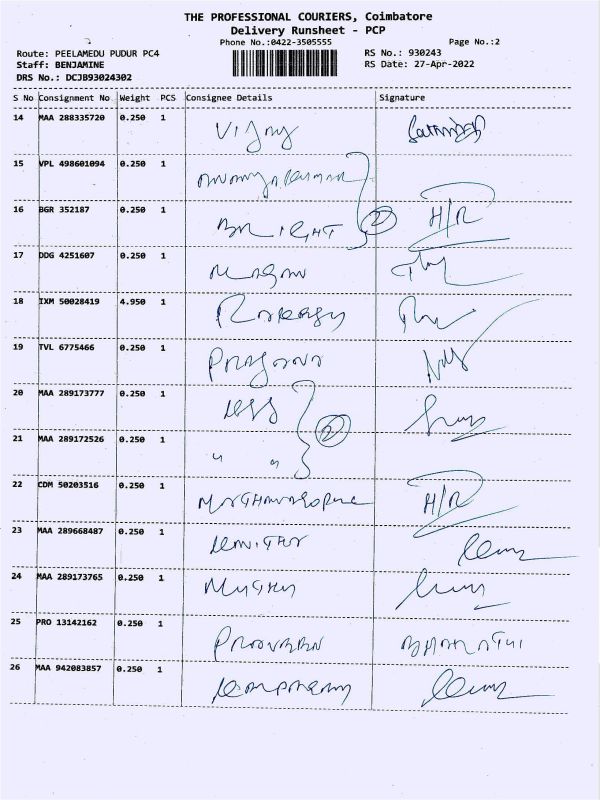 THE PROFESSIONAL COURIERS, Coimbatore
Delivery Runsheet - PCP
Phone No.:0422-3505555 Page No.:2
Route: PEELAMEDU PUDUR PC4 RS No.: 930243
Staff: BENJAMINE RS Date: 27-Apr-2022
DRS No.: DCJB93024302
S No Consignment No Weight PCS Consignee Details Signature
14 MAA 288335720 0.250 1 Vijay
15 VPL 498601094 0.250 1
16 BGR 352187 0.250 1 BRIGHT 2 H/R
17 DDG 4251607 0.250 1
18 IXM 50028419 4.950 1
19 TVL 6775466 0.250 1
20 MAA 289173777 0.250 1 2
21 MAA 289172526 0.250 1 " "
22 CDM 50203516 0.250 1 H/R
23 MAA 289668487 0.250 1
24 MAA 289173765 0.250 1 Muthu
25 PRO 13142162 0.250 1
26 MAA 942083857 0.250 1